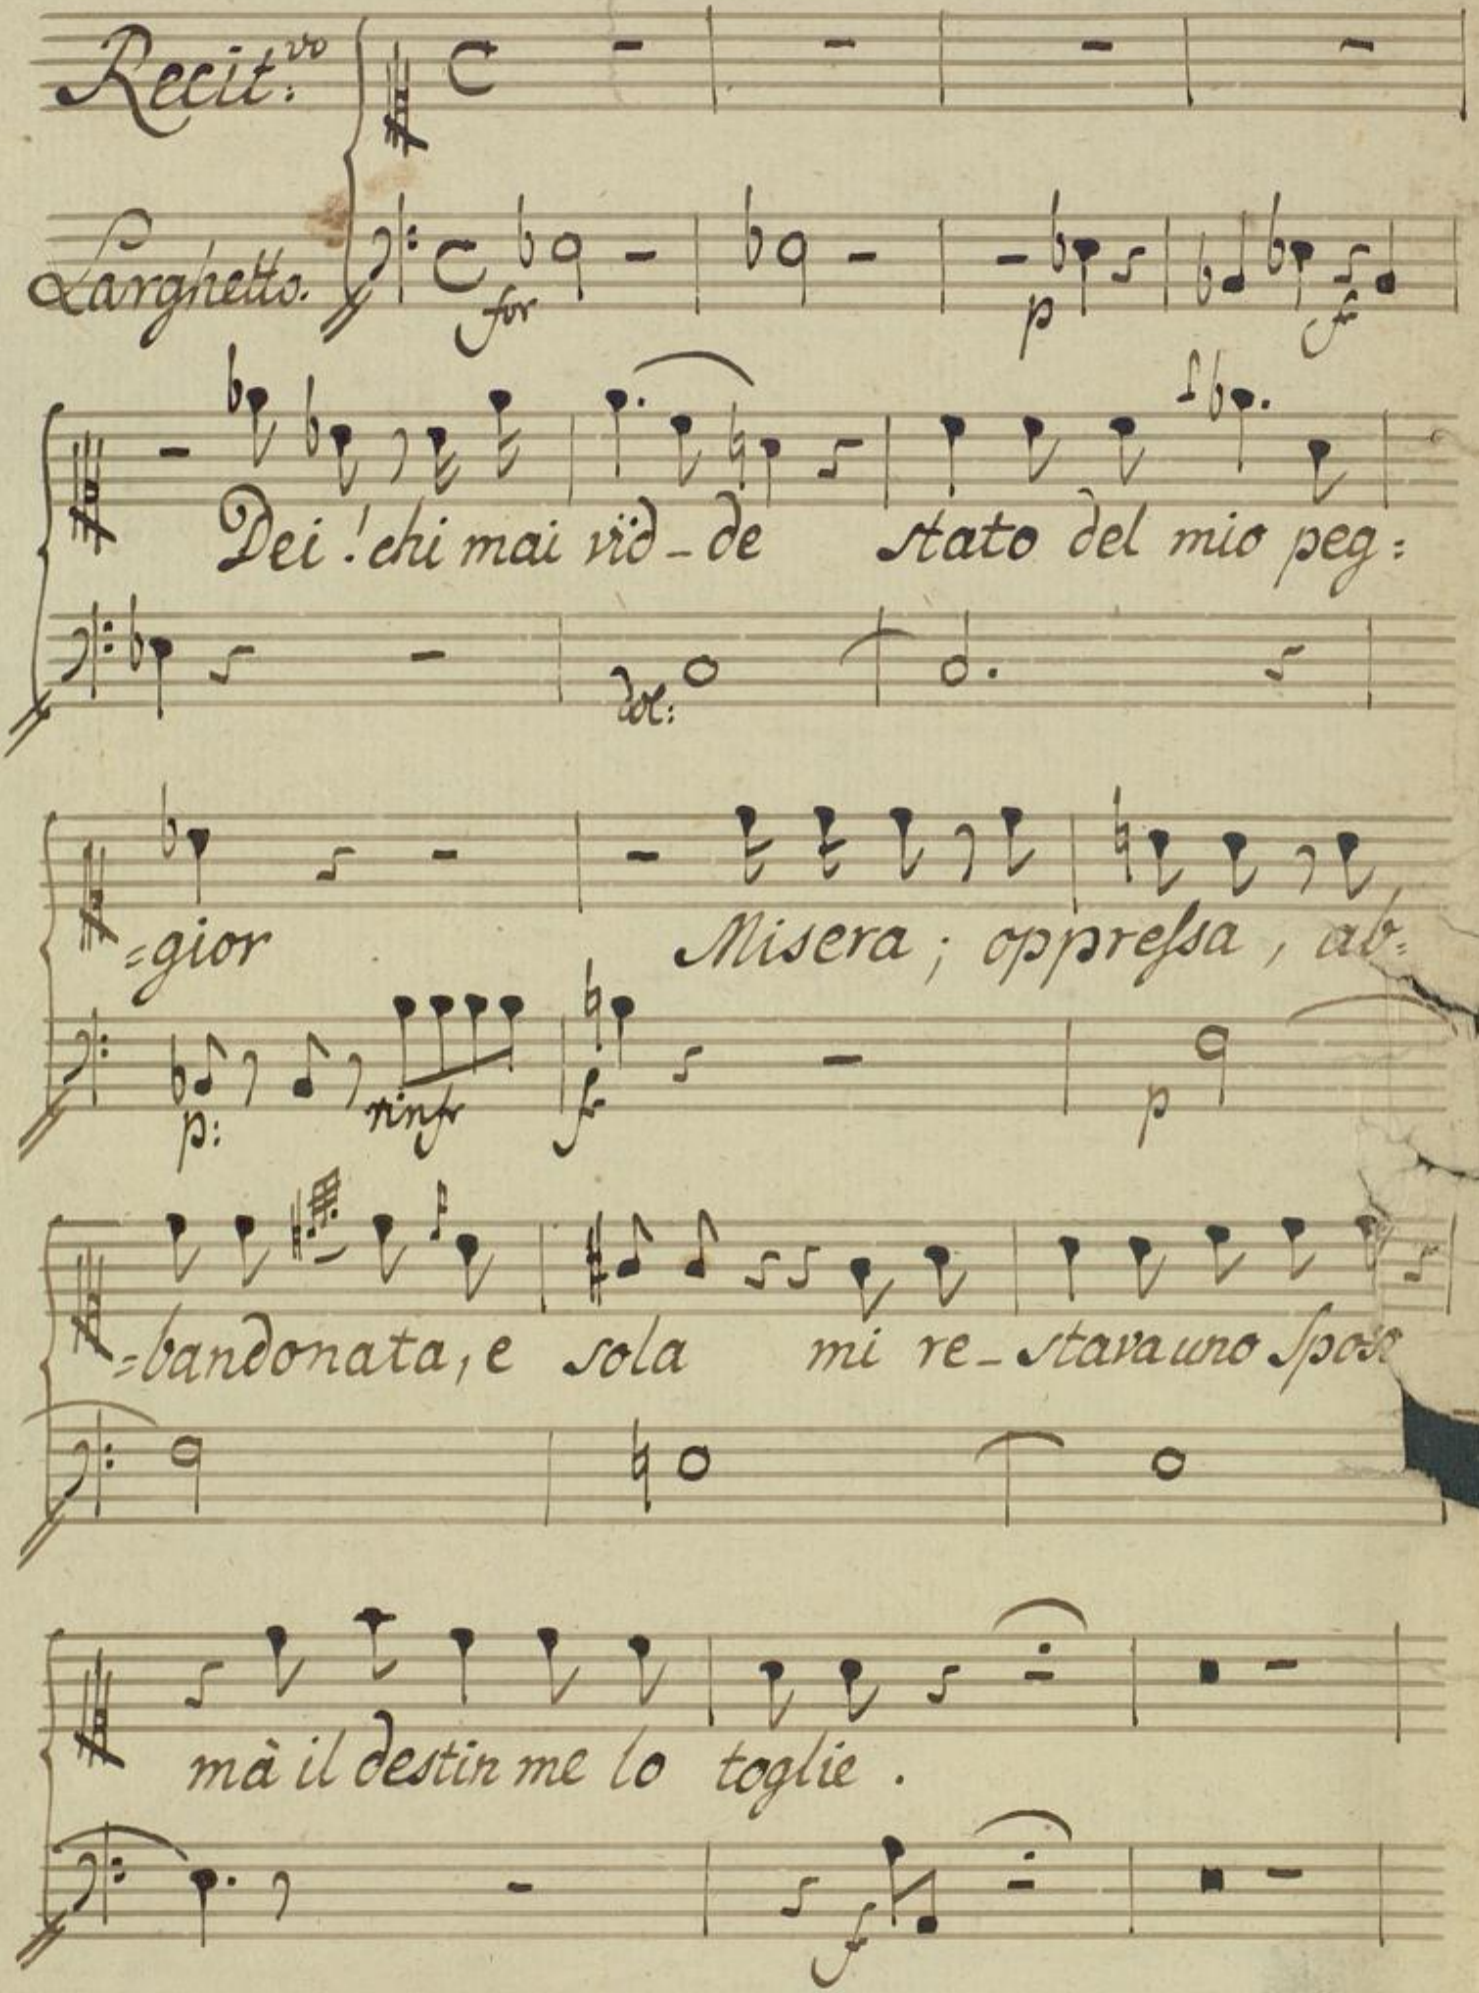 Recit:vo
Larghetto.
for p fr
Dei! chi mai vid-de stato del mio peg:
dol:
=gior Misera; oppreſsa, ab=
p: rinfr fr p
=bandonata, e sola mi re-stava uno Sposo
mà il destin me lo toglie.
f